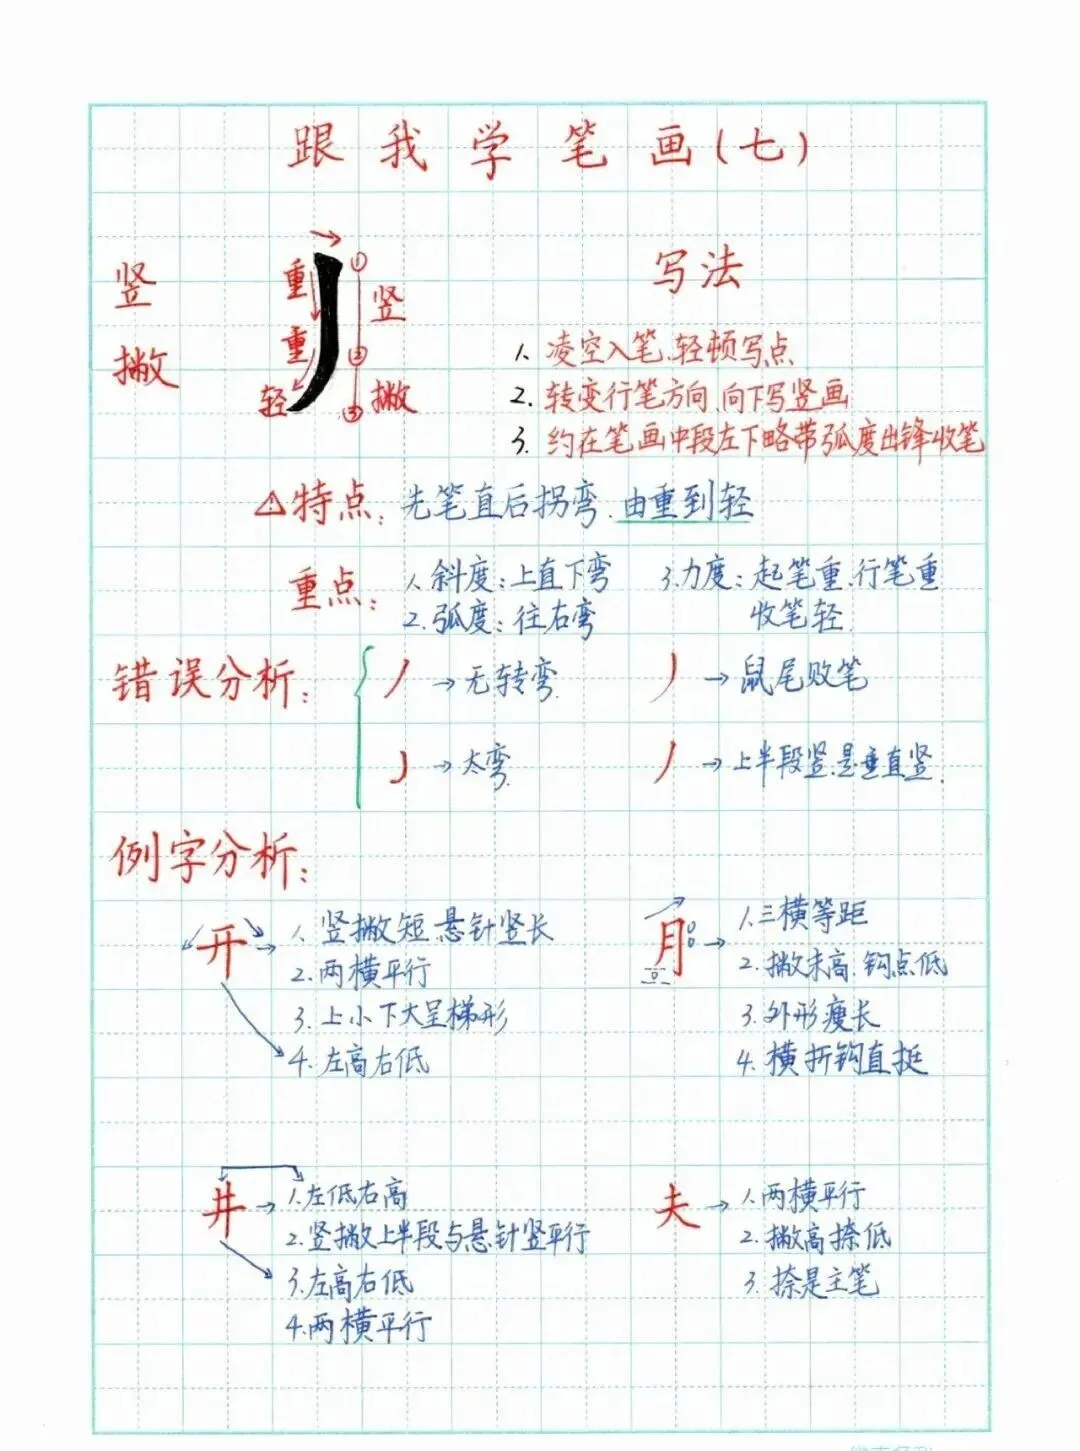 跟我学笔画(七)
竖撇
重
重
轻
①
②
③
竖
撇
写法
1. 凌空入笔、轻顿写点
2. 转变行笔方向、向下写竖画
3. 约在笔画中段左下略带弧度出锋收笔
特点：先笔直后拐弯、由重到轻
重点：
1. 斜度：上直下弯
2. 弧度：往右弯
3. 力度：起笔重、行笔重
收笔轻.
错误分析：
→无转弯.
→鼠尾败笔
→太弯.
→上半段竖.是垂直竖.
例字分析：
开
1. 竖撇短.悬针竖长
2. 两横平行
3. 上小下大呈梯形
4. 左高右低
月
1. 三横等距
2. 撇末高、钩点低
3. 外形瘦长
4. 横折钩直挺
井
1. 左低右高
2. 竖撇上半段与悬针竖平行
3. 左高右低
4. 两横平行
夫
1. 两横平行
2. 撇高捺低
3. 捺是主笔